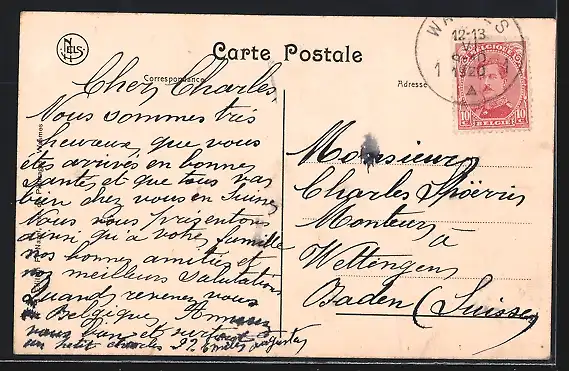 NELS
Carte Postale
Correspondance
Adresse
WA
S
12-13
V
1920
1
BELGIQUE
10 c
10 c
BELGIË
Cher Charles,
Nous sommes très
heureux que vous
êtes arrivés en bonnes
santés et que tous vas
bien chez vous en Suisse
Nous vous présentons
ainsi qu'a votre famille
nos bonnes amitiés et
nos meilleurs salutations
Quand revenez vous
en Belgique,
vous bien et surtout
un petit charles
Monsieur
Charles Spöerri
Monteur
à
Wettengen
Baden (Suisse)